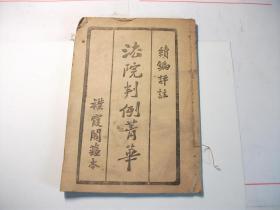 續編評註
法院判例菁華
襟霞閣藏本